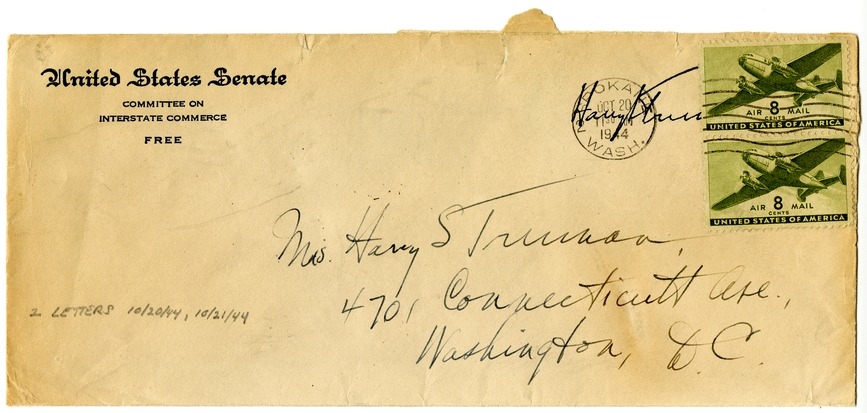 United States Senate
COMMITTEE ON
INTERSTATE COMMERCE
FREE
SPOKANE
OCT 20
1944
WASH.
AIR 8 MAIL
CENTS
UNITED STATES OF AMERICA
AIR 8 MAIL
CENTS
UNITED STATES OF AMERICA
Mrs. Harry S Truman,
4701 Connecticutt Ave.,
Washington, D.C.
2 LETTERS 10/20/44, 10/21/44